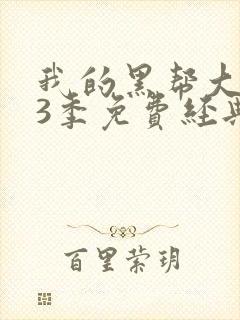 我的黑帮大
3季免費经典
百里萦玥